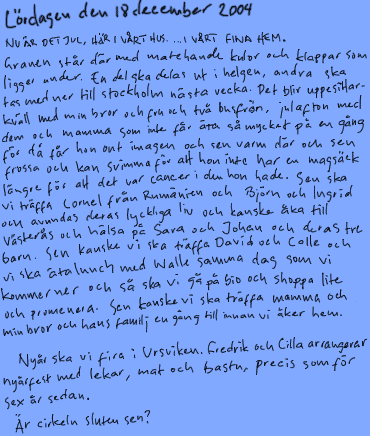 Lördagen den 18 december 2004
NU ÄR DET JUL, HÄR I VÅRT HUS. ... I VÅRT FINA HEM.
Granen står där med matchande kulor och klappar som
ligger under. En del ska delas ut i helgen, andra ska
tas med ner till stockholm nästa vecka. Det blir uppesittar-
kväll med min bror och fru och två busfrön, julafton med
dem och mamma som inte får äta så mycket på en gång
för då får hon ont i magen och sen varm där och sen
frossa och kan svimma för att hon inte har en magsäck
längre för att det var cancer i den hon hade. Sen ska
vi träffa Cornel från Rumänien och Björn och Ingrid
och avundas deras lyckliga liv och kanske åka till
Västerås och hälsa på Sara och Johan och deras tre
barn. Sen kanske vi ska träffa David och Calle och
vi ska äta lunch med Walle samma dag som vi
kommer ner och så ska vi gå på bio och shoppa lite
och promenera. Sen kanske vi ska träffa mamma och
min bror och hans familj en gång till innan vi åker hem.
Nyår ska vi fira i Ursviken. Fredrik och Cilla arrangerar
nyårfest med lekar, mat och bastu, precis som för
sex år sedan.
Är cirkeln sluten sen?